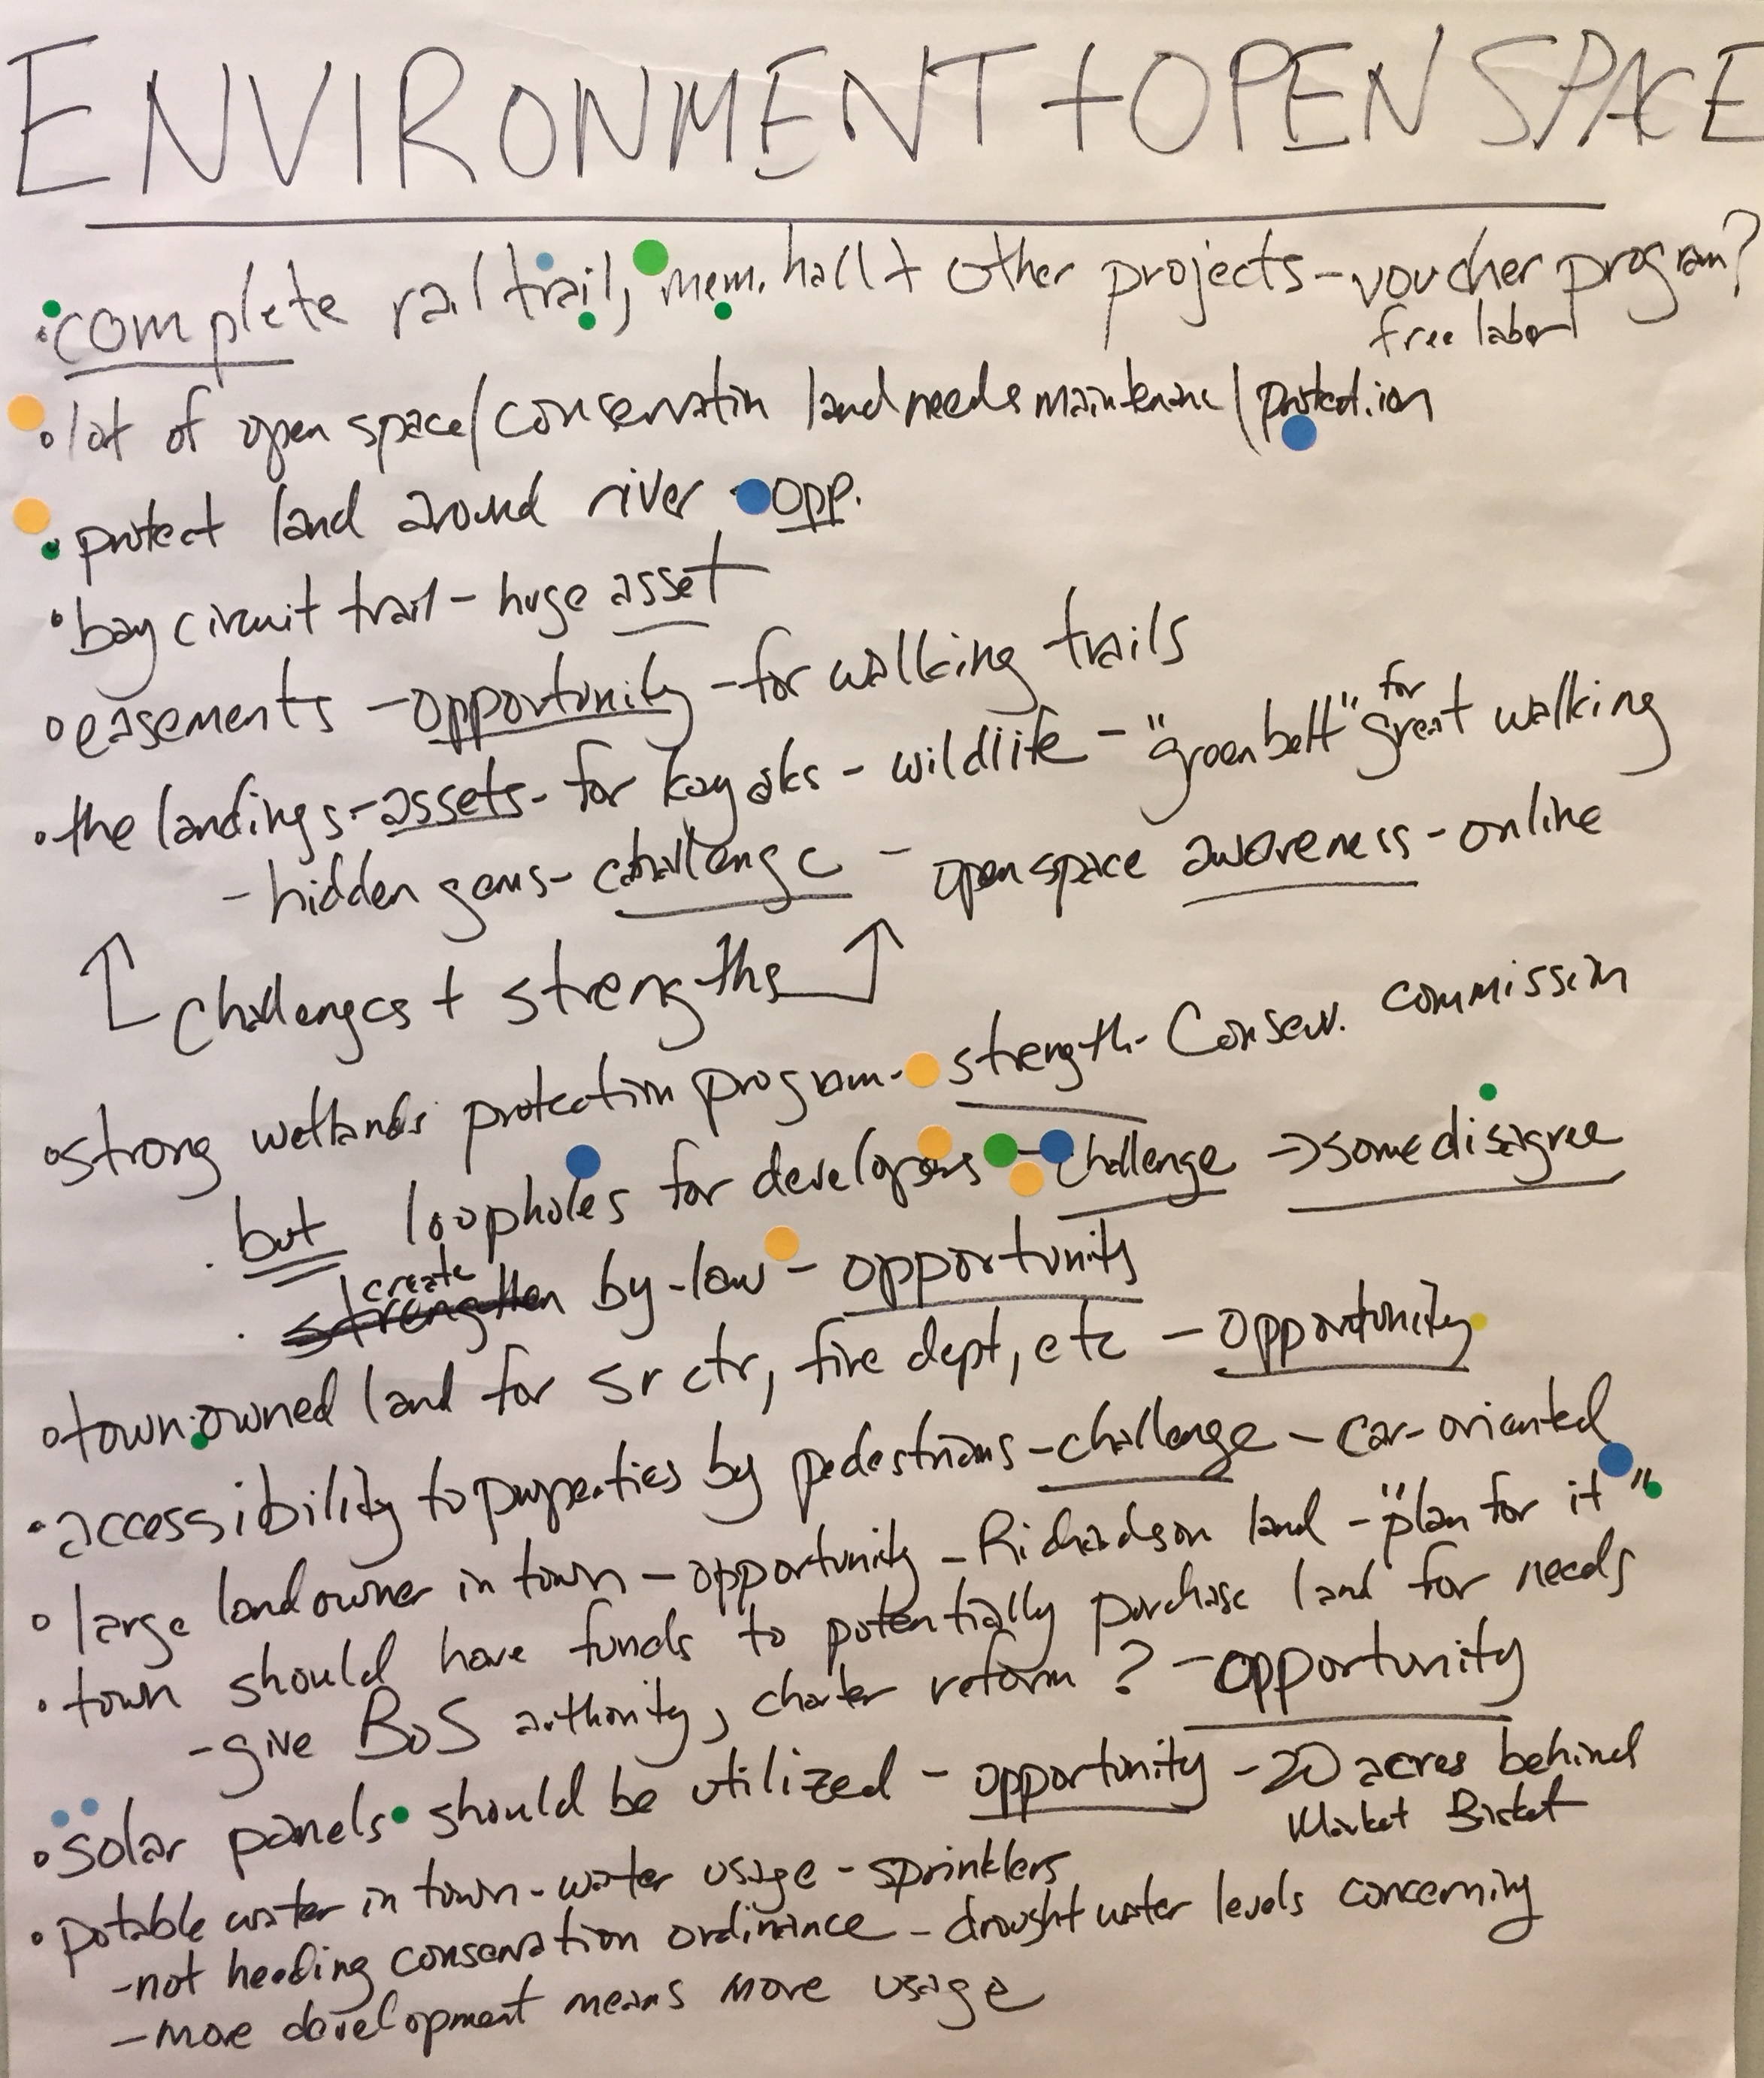 ENVIRONMENT + OPEN SPACE
• complete rail trail, mem. hall + other projects - voucher program?
free labor
• lot of open space/conservation land needs maintenanc/protection
• protect land around river - opp.
• bay circuit trail - huge asset
• easements - opportunity - for walking trails
• the landings - assets - for kayaks - wildlife - "greenbelt" for great walking
- hidden gems - challenge - open space awareness - online
↑ Challenges + strengths ↑
• strong wetlands protection program - strength - Conserv. commission
• but loopholes for developers - challenge → some disagree
• create by-law - opportunity
• town-owned land for sr ctr, fire dept, etc - opportunity
• accessibility to properties by pedestrians - challenge - car-oriented
• large landowner in town - opportunity - Richardson land - "plan for it"
• town should have funds to potentially purchase land for needs
- give BoS authority, charter reform? - opportunity
• solar panels should be utilized - opportunity - 20 acres behind
Market Basket
• potable water in town - water usage - sprinklers
- not heeding conservation ordinance - drought water levels concerning
- more development means more usage